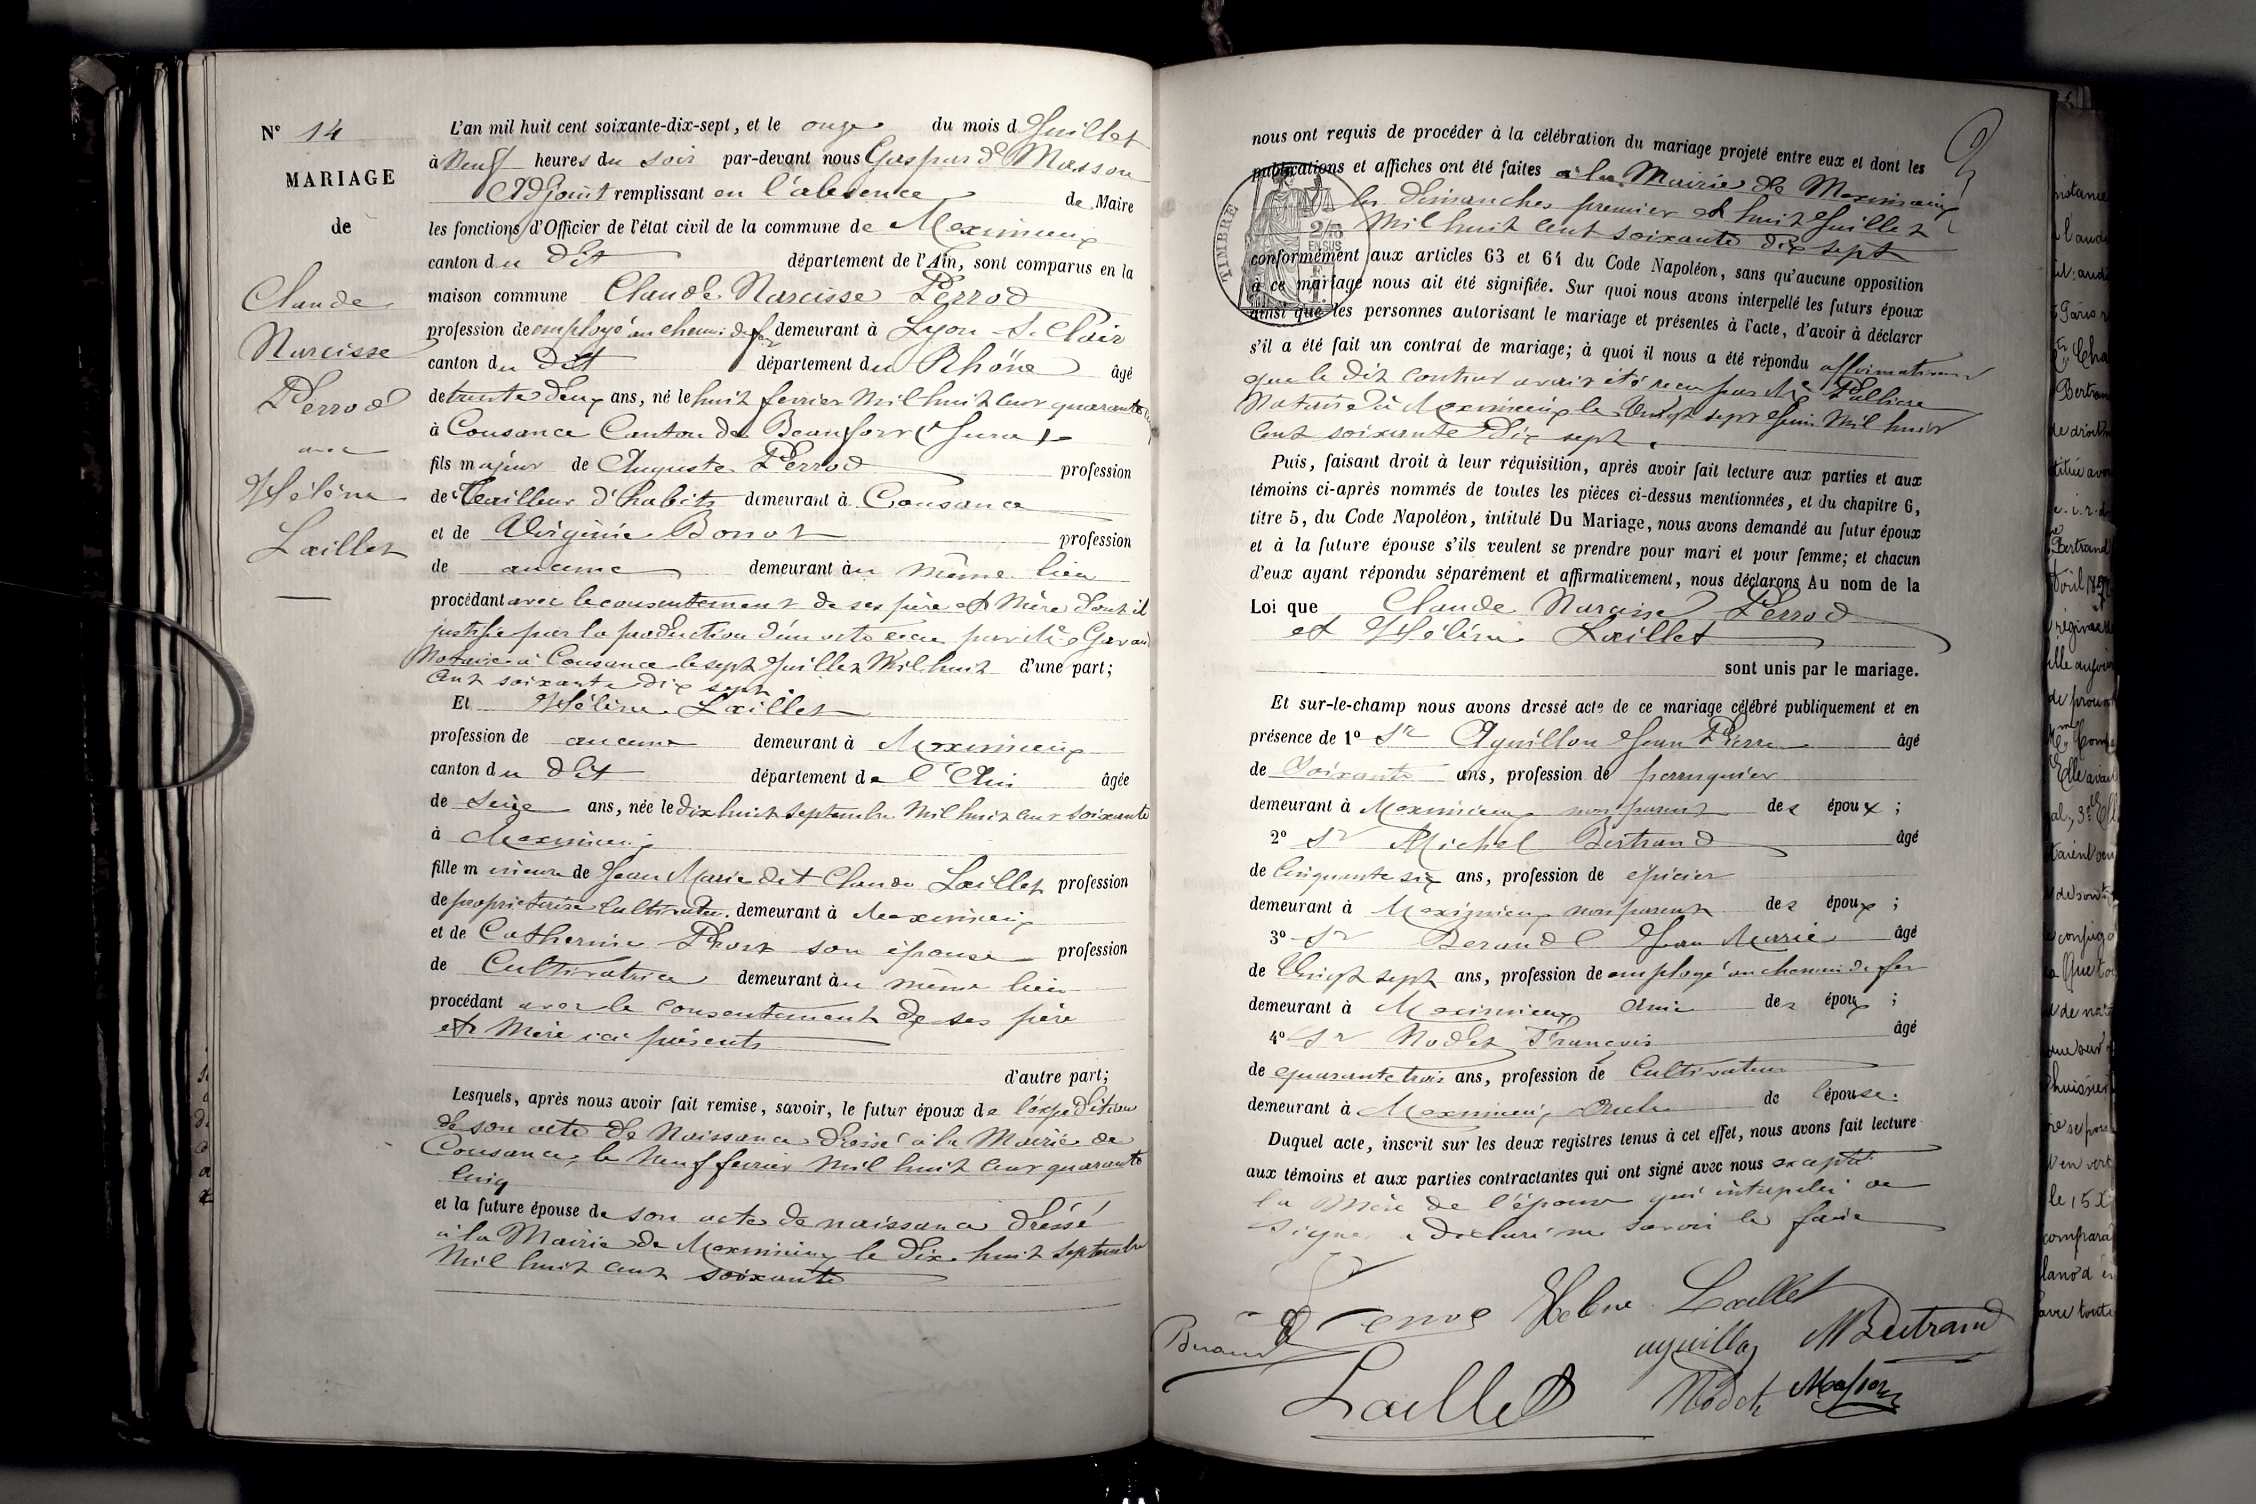 N° 14
MARIAGE
de
Claude
Narcisse
Perrod
avec
Hélène
Laillet
L'an mil huit cent soixante-dix-sept, et le onze du mois d Juillet
à Neuf heures du soir par-devant nous Gaspard Masson
Adjoint remplissant en l'absence de Maire
les fonctions d'Officier de l'état civil de la commune de Meximieux
canton du dit département de l'Ain, sont comparus en la
maison commune Claude Narcisse Perrod
profession de employé au chemin de fer demeurant à Lyon St Clair
canton du dit département du Rhône âgé
de trente deux ans, né le huit fevrier Mil huit cent quarante cinq
à Cousance Canton de Beaufort (Jura)
fils majeur de Auguste Perrod profession
de Tailleur d'habits demeurant à Cousance
et de Virginie Bonnot profession
de aucune demeurant au même lieu
procédant avec le consentement de ses père et Mère dont il
justifie par la production d'un acte recu par Me
Notaire à Cousance le sept Juillet Mil huit d'une part;
cent soixante dix sept.
Et Hélène Laillet
profession de aucune demeurant à Meximieux
canton du dit département de l'Ain âgée
de seize ans, née le dix huit septembre Mil huit cent soixante
à Meximieux
fille mineure de Jean Marie dit Claude Laillet profession
de propriétaire Cultivateur demeurant à Meximieux
et de Catherine Prost son épouse profession
de Cultivatrice demeurant au même lieu
procédant avec le consentement de ses père
et Mère ici présents
d'autre part;
Lesquels, après nous avoir fait remise, savoir, le futur époux de l'expédition
de son acte de Naissance dressé à la Mairie de
Cousance, le Neuf fevrier Mil huit cent quarante
Cinq
et la future épouse de son acte de naissance dressé
à la Mairie de Meximieux le dix huit septembre
Mil huit cent soixante
nous ont requis de procéder à la célébration du mariage projeté entre eux et dont les
publications et affiches ont été faites à la Mairie de Meximieux
les dimanches premier et huit Juillet
Mil huit cent soixante dix sept
TIMBRE
2/10
EN SUS
conformément aux articles 63 et 64 du Code Napoléon, sans qu'aucune opposition
à ce mariage nous ait été signifiée. Sur quoi nous avons interpellé les futurs époux
ainsi que les personnes autorisant le mariage et présentes à l'acte, d'avoir à déclarer
s'il a été fait un contrat de mariage; à quoi il nous a été répondu affirmativement
que le dit contrat avait été recu par Me
Notaire à Meximieux le Vingt sept Juin Mil huit
Cent soixante dix sept.
Puis, faisant droit à leur réquisition, après avoir fait lecture aux parties et aux
témoins ci-après nommés de toutes les pièces ci-dessus mentionnées, et du chapitre 6,
titre 5, du Code Napoléon, intitulé Du Mariage, nous avons demandé au futur époux
et à la future épouse s'ils veulent se prendre pour mari et pour femme; et chacun
d'eux ayant répondu séparément et affirmativement, nous déclarons Au nom de la
Loi que Claude Narcisse Perrod
et Hélène Laillet
sont unis par le mariage.
Et sur-le-champ nous avons dressé acte de ce mariage célébré publiquement et en
présence de 1° Sr Ayuillon Jean Pierre âgé
de Soixante ans, profession de perruquier
demeurant à Meximieux non parent des époux;
2° Sr Michel Bertrand âgé
de Cinquante six ans, profession de épicier
demeurant à Meximieux non parent des époux;
3° Sr Beraud Jean Marie âgé
de Vingt sept ans, profession de employé au chemin de fer
demeurant à Meximieux Ami des époux;
4° Sr Nodet François âgé
de quarante trois ans, profession de Cultivateur
demeurant à Meximieux Oncle de l'épouse.
Duquel acte, inscrit sur les deux registres tenus à cet effet, nous avons fait lecture
aux témoins et aux parties contractantes qui ont signé avec nous excepté
la Mère de l'épouse qui interpelée de
signer a déclaré ne savoir le faire
Perrod Helene Laillet
Beraud ayuillon MBertrand
Laillet Nodet Masson